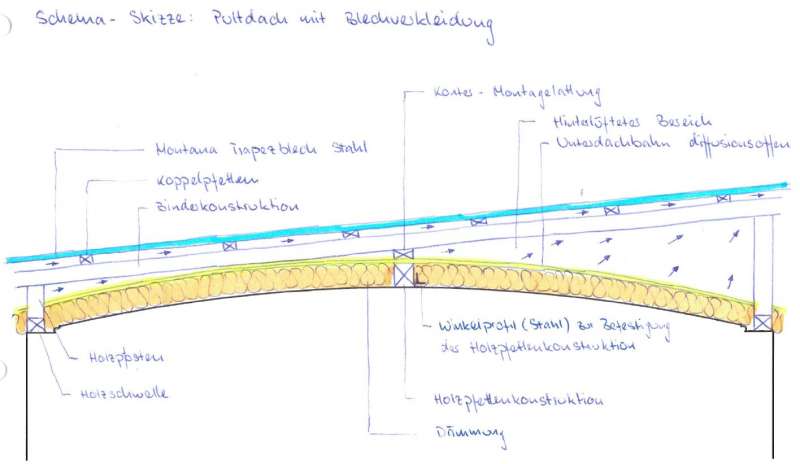 Schema - Skizze: Pultdach mit Blechverkleidung
Konter - Montagelattung
Hinterlüftetes Bereich
Unterdachbahn diffusionsoffen
Montana Trapezblech Stahl
Koppelpfetten
Binderkonstruktion
Winkelprofil (Stahl) zur Befestigung
des Holzpfettenkonstruktion
Holzpfosten
Holzschwelle
Holzpfettenkonstruktion
Dämmung